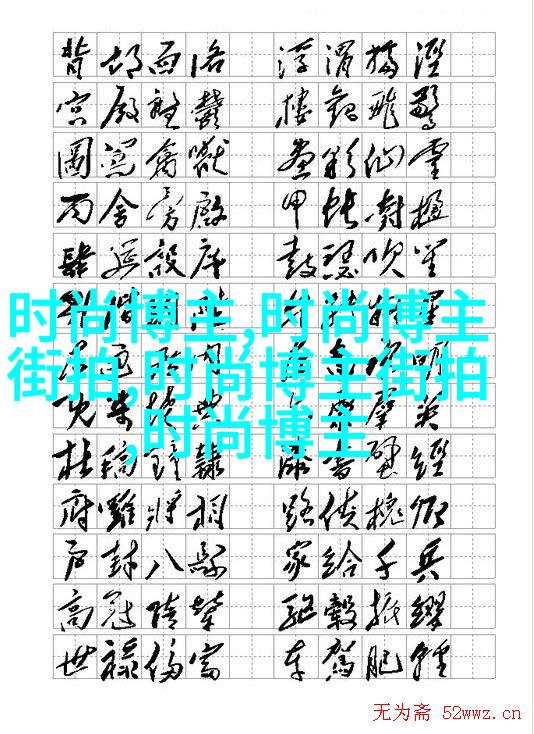 背邙面洛 浮渭據涇
宮殿盤鬱 樓觀飛驚
圖寫禽獸 畫彩仙靈
丙舍傍啟 甲帳對楹
肆筵設席 鼓瑟吹笙
时尚博主,时尚博主
街拍,时尚博主街拍
,时尚博主
杜稿鍾隸 漆書壁經
府羅將相 路俠槐卿
戶封八縣 家給千兵
高冠陪輦 驅轂振纓
世祿侈富 車駕肥輕
无为斋 52wwz.cn